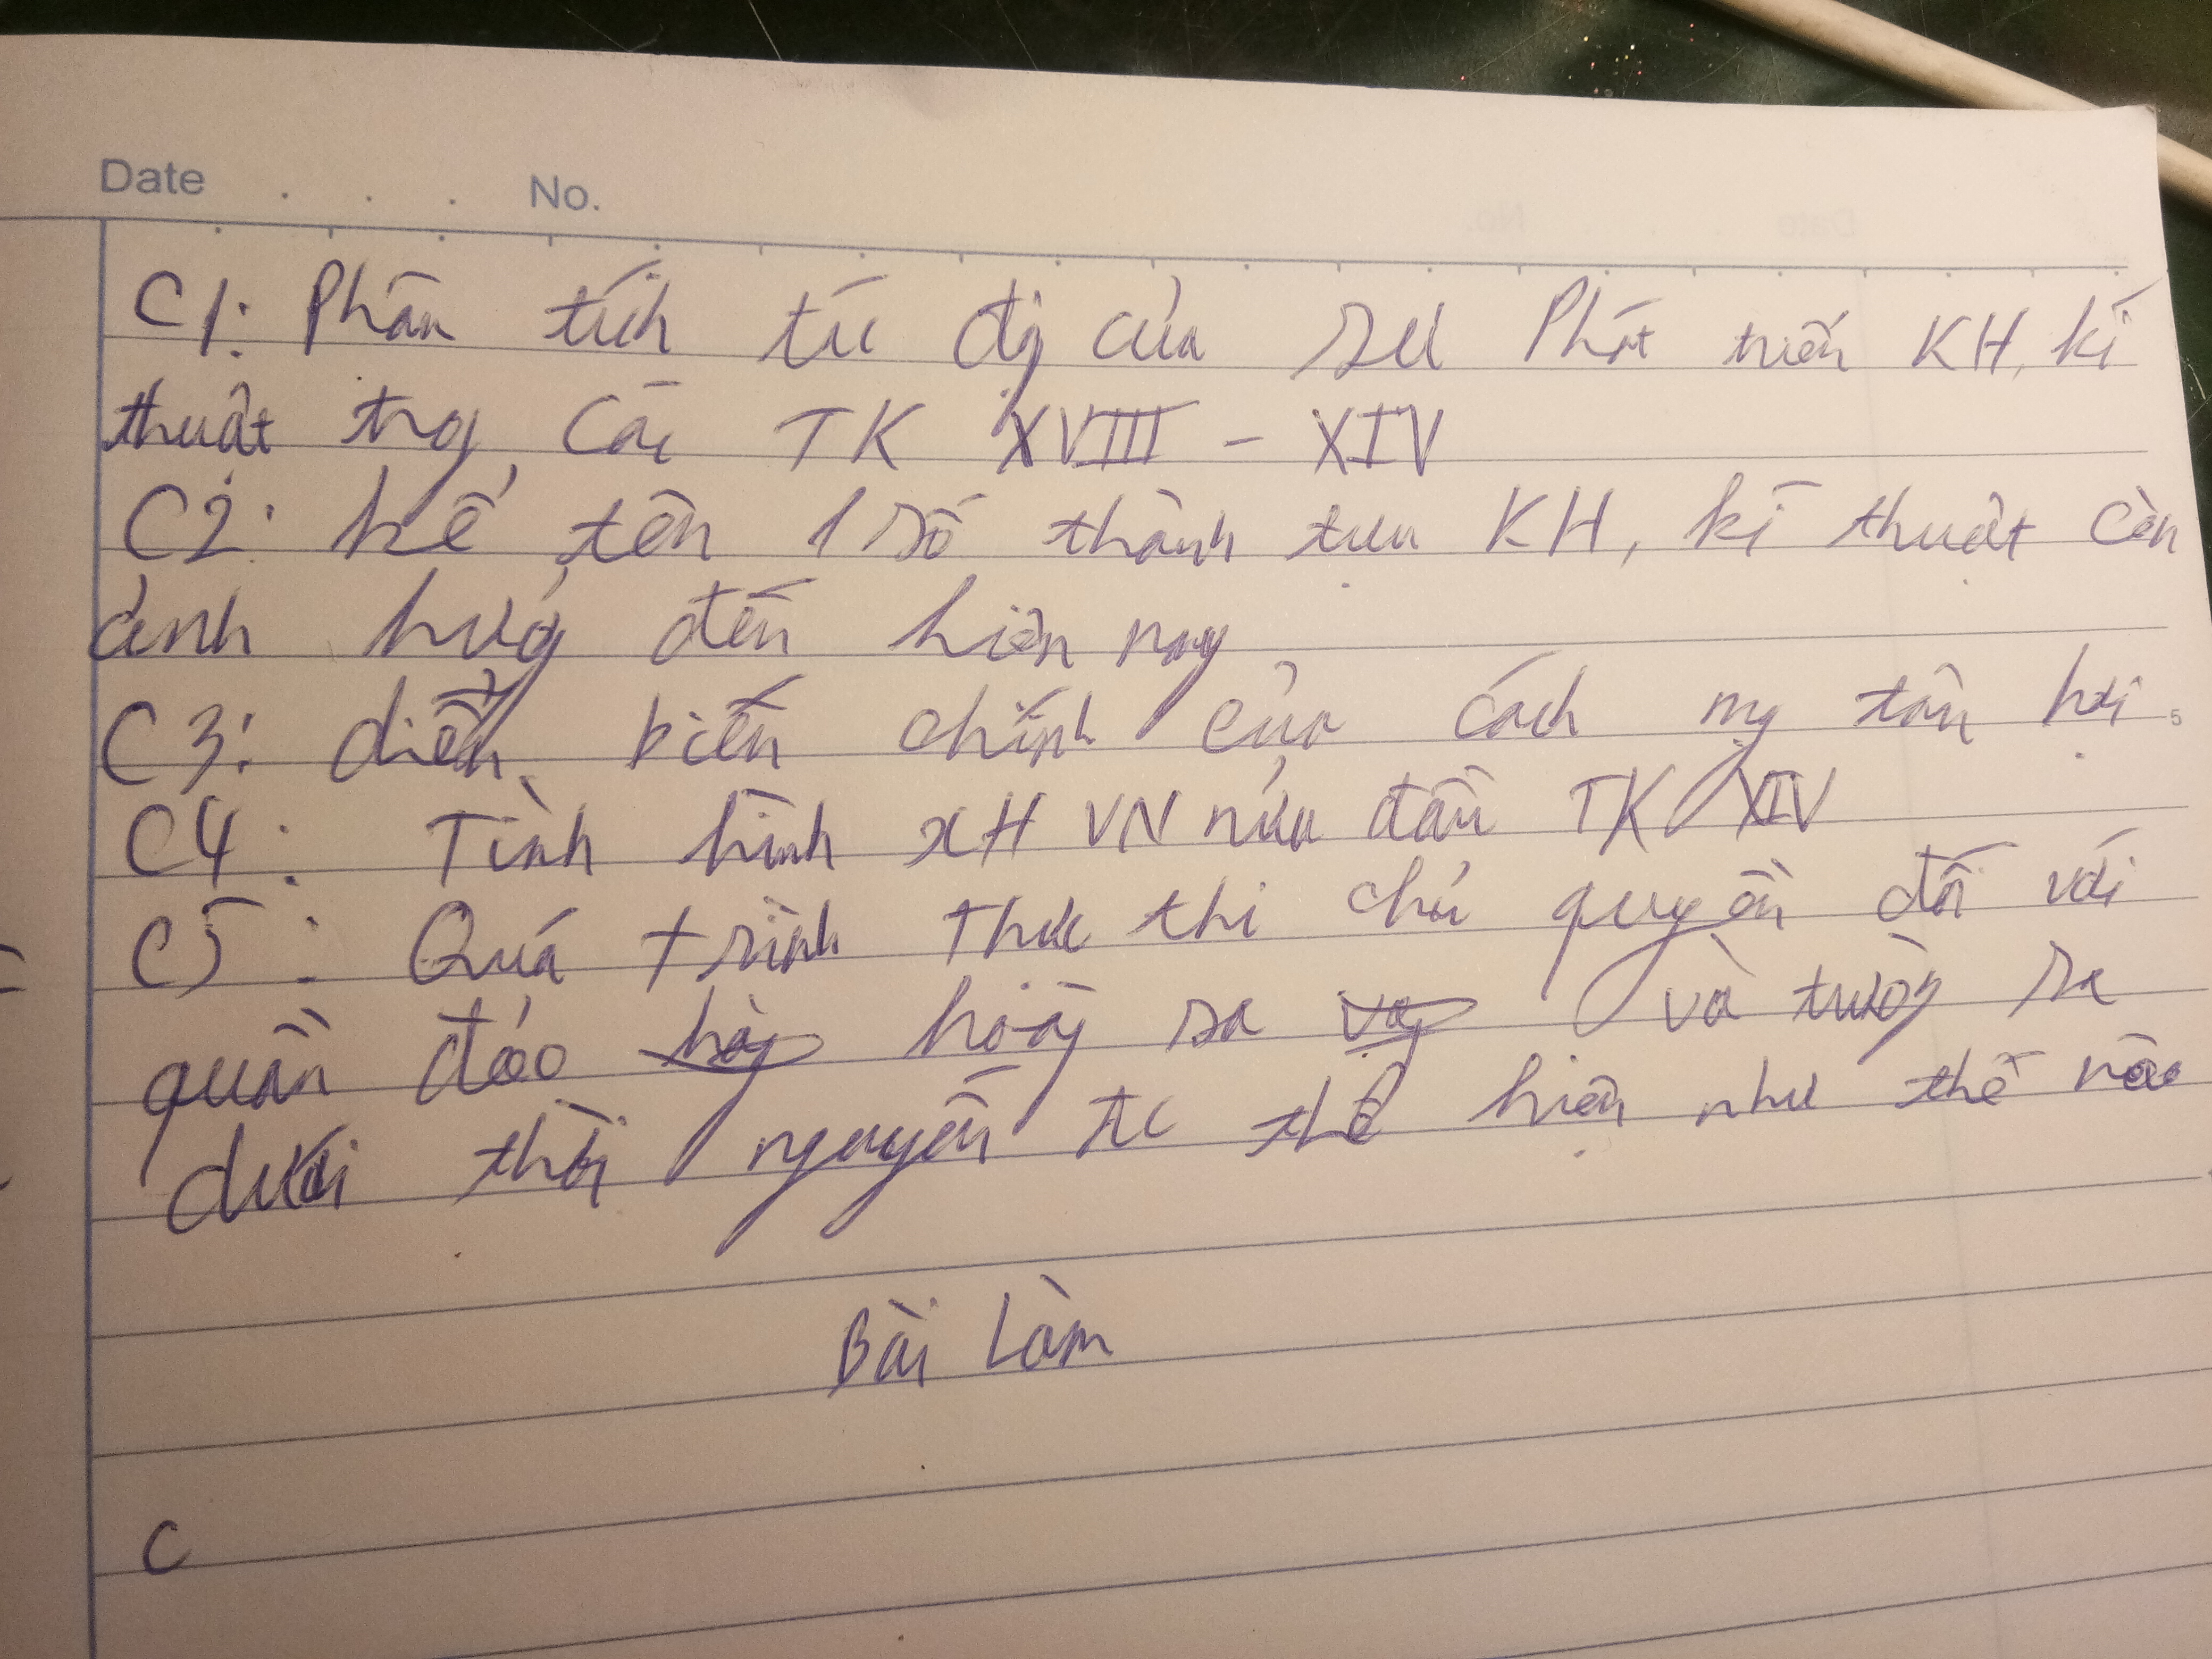 Date No.
C1: Phân tích tác độg của sự Phát triển KH, kĩ
thuật trog các TK XVIII - XIV
C2: kể tên 1 số thành tựu KH, kĩ thuật còn
ảnh hưởg đến hiện nay
C3: diễn biến chính của cách mạg tân hợi
C4: Tình hình xH VN nửa đầu TK XIV
C5: Quá trình thực thi chủ quyền đối với
quần đảo hoàg sa và trườg sa
dưới thời nguyễn đc thể hiện như thế nào
Bài Làm
C